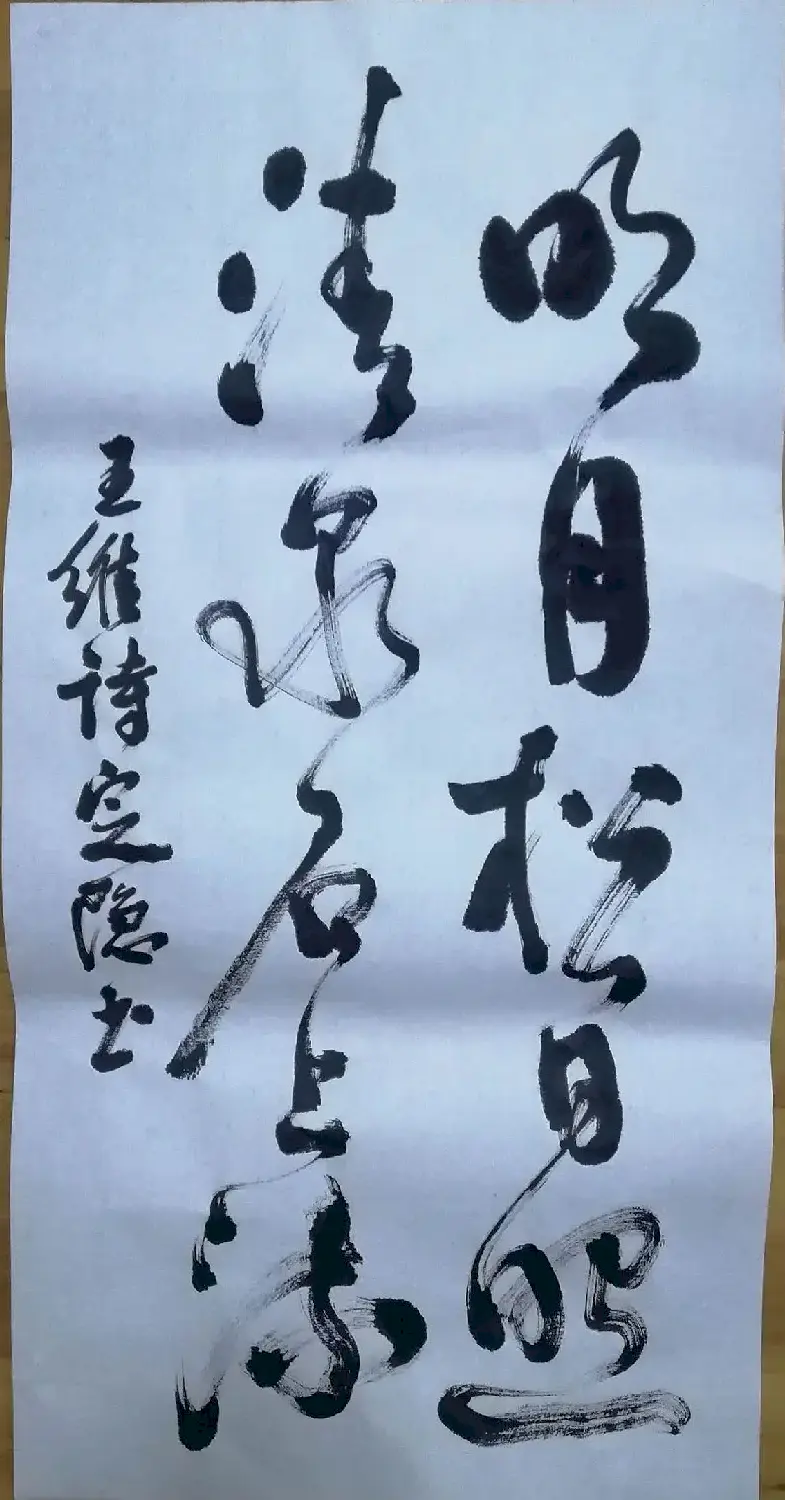 明月松间照
清泉石上流
王维诗定隐书